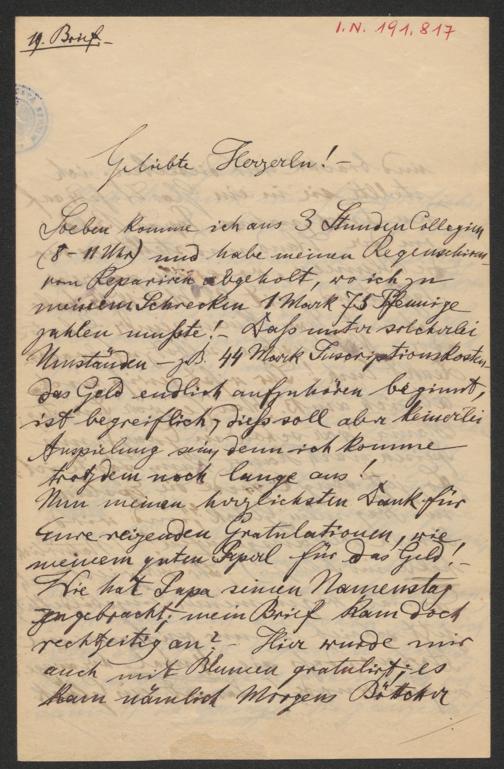 19. Brief.-
I.N. 191.817
Geliebte Herzerln!-
Soeben komme ich aus 3 Stunden Collegien
(8-11 Uhr) und habe meinen Regenschirm
von Repariren abgeholt, wo ich zu
meinem Schrecken 1 Mark 75 Pfennige
zahlen mußte!- Daß unter solcherlei
Umständen - z.B. 44 Mark Inscriptionskosten
das Geld endlich aufzuhören beginnt,
ist begreiflich, dieß soll aber keinerlei
Anspielung sein, denn ich komme
trotzdem noch lange aus!
Nun meinen herzlichsten Dank für
Eure reizenden Gratulationen, wie
meinem guten für das Geld!-
Wie hat Papa seinen Namenstag
zugebracht; mein Brief kam doch
rechtzeitig an?- Hier wurde mir
auch mit Blumen gratulirt; es
kam nämlich Morgens Böttcher